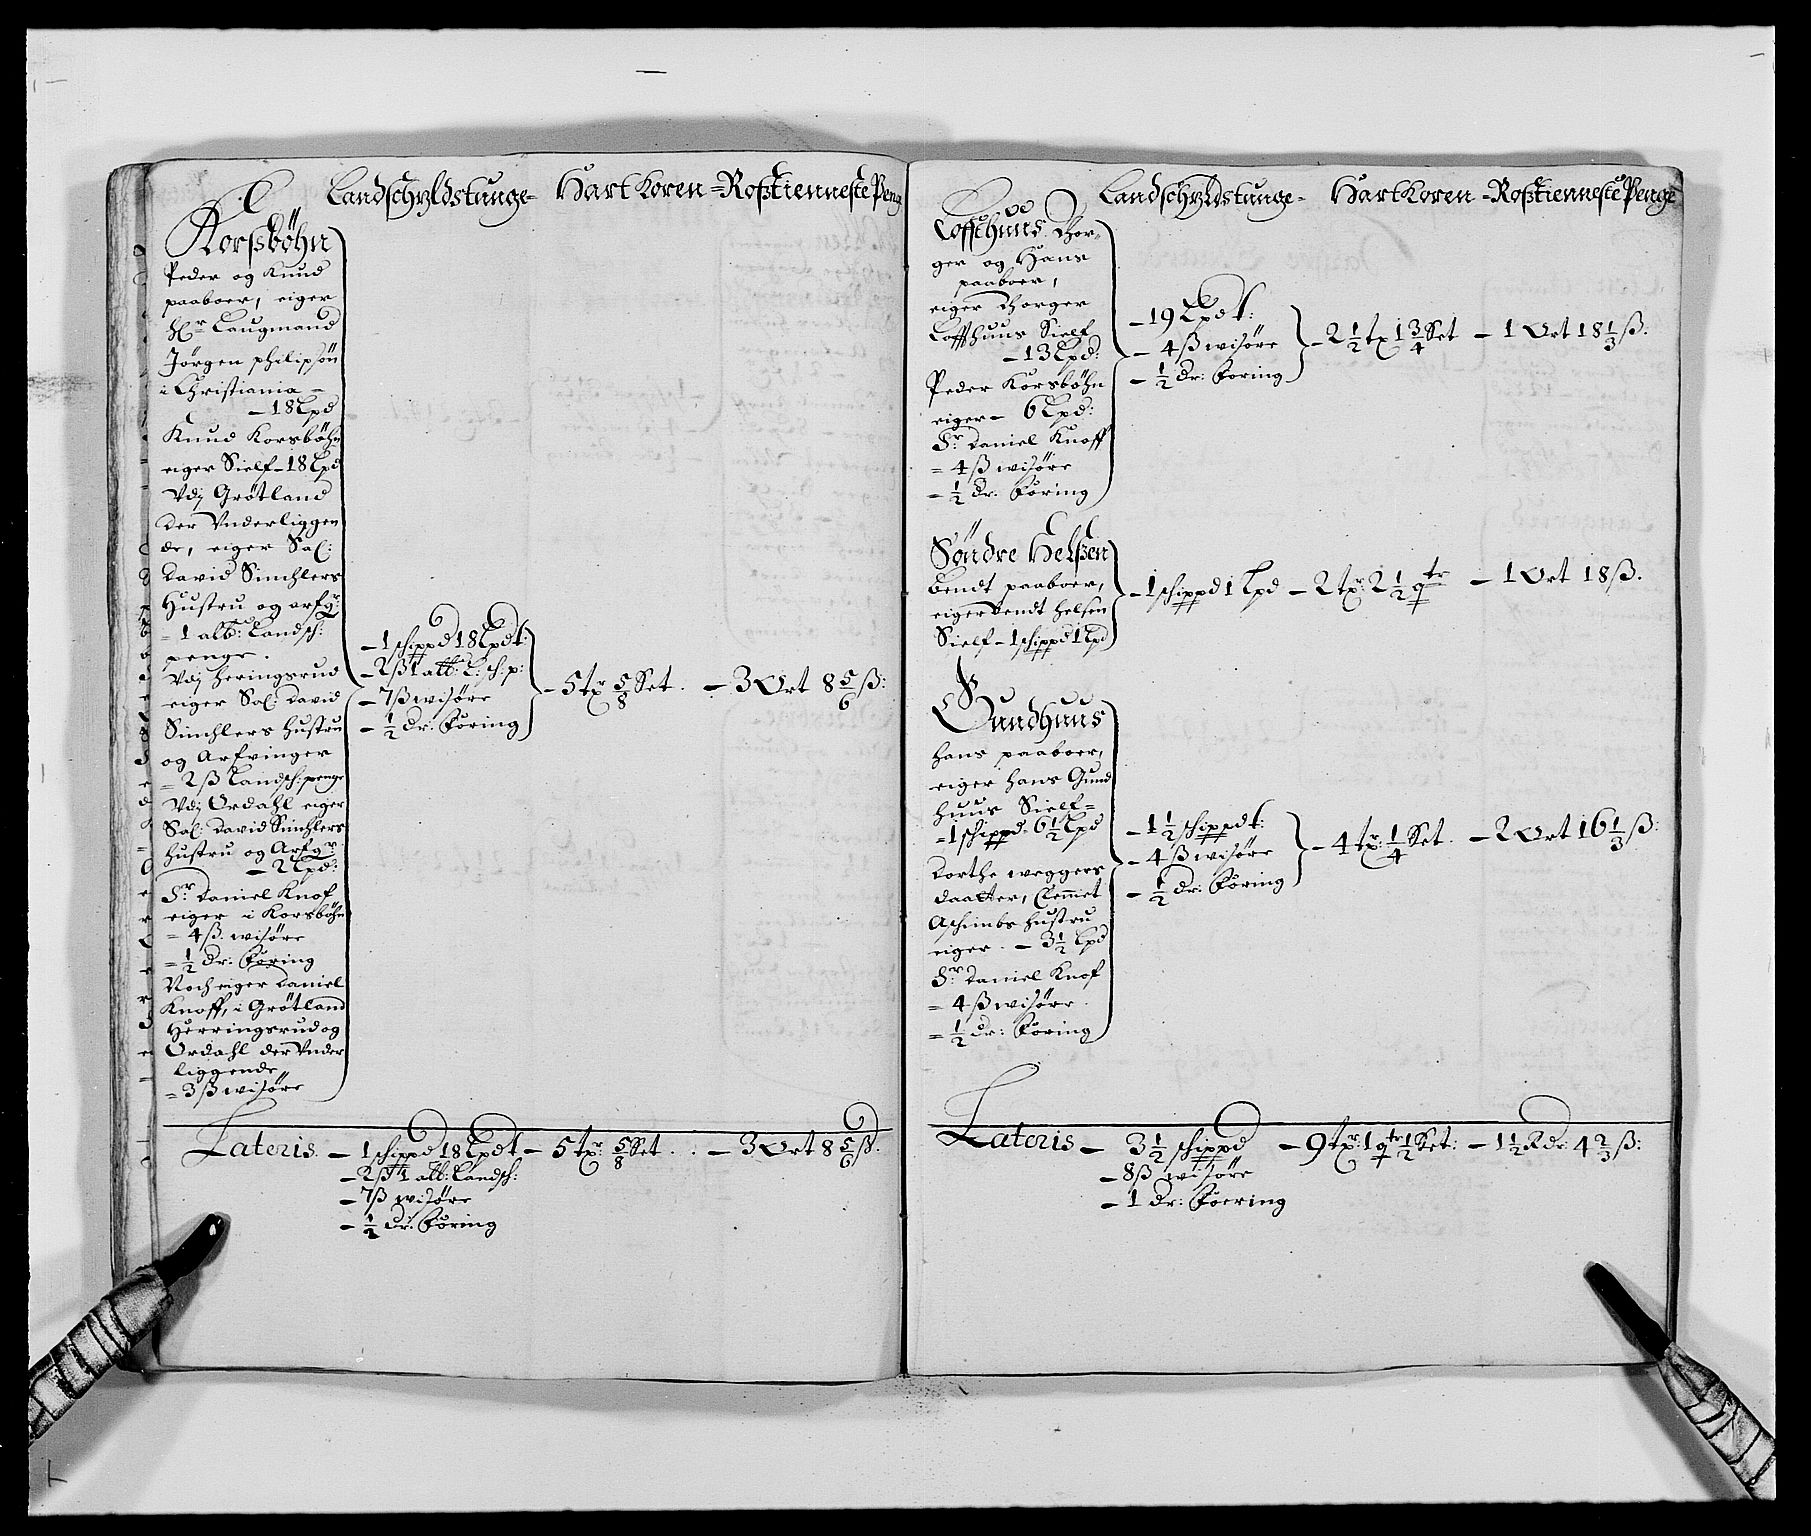 Landschyldstunge - Hart Koren = Rosstienneste Peng
Korssböhn
Peder og Knud
paaboer, eiger
Hr Laugmand
Jörgen philipsön
i Christiania -
- 18 Lpd
Knud Korsböhn
eiger Sielf - 18 Lpd
Vdj Grötland
der Vnderliggen
de, eiger Sal:
David Sinchlers
Hustru og arfgr:
= 1 alb: Landsch:
penge.
Vdj heringsrud
eiger Sal: David
Sinchlers hustru
og Arfvinger
= 2 ß Landsch: penge
Vdj Ordahl eiger
Sal: David Sinchlers
hustru og Arfgr:
- 2 Lpd:
Sr Daniel Knof
eiger i Korsböhn
= 4 ß. wisöre
= 1/2 dr: Föring
Noch eiger Daniel
Knoff, i Grötland
Herringsrud og
Ordahl der Vnder
liggende
= 3 ß wisöre
- 1 schippd 18 Lpdt:
- 2 ß 1 alb: L: sch: p:
- 7 ß wisöre
- 1/2 dr: Föring
- 5 tr 5/8 Set. - 3 Ort 8 5/6 ß:
Lateris. - 1 schippd 18 Lpdt - 5 tr: 5/8 Set . : - 3 Ort 8 5/6 ß.
- 2 ß 1 alb: Landsch:
- 7 ß wisöre
- 1/2 dr: Föring
Landschyldstunge - Hart Koren = Rosstienneste Penge
Loffthuus. Thor-
ger og Hans
paaboer,
eiger Thorger
Loffthuus Sielf
- 13 Lpd:
Peder Korsböhn
eiger - 6 Lpd:
Sr. Daniel Knoff
= 4 ß wisöre
- 1/2 dr: Foring
- 19 Lpdt:
- 4 ß wisöre
- 1/2 dr: Foring
- 2 1/2 tr 1 3/4 Set - 1 Ort 18 1/3 ß:
Söndre Helssen
bendt paaboer,
eiger bendt helsen
Sielf - 1 schippd 1 Lpd
- 1 schippd 1 Lpd - 2 tr: 2 1/2 qtr - 1 Ort 18 ß.
Gundhuus
hans paaboer,
eiger hans Gund
huus Sielf =
= 1 schippd. 6 1/2 Lpd
Dorthe weggers
daatter, Clemmet
Aschimbs hustru
eiger. - 3 1/2 Lpd
Sr. Daniel Knof
= 4 ß wisöre.
= 1/2 dr: Foring
- 1 1/2 schippdt:
- 4 ß wisöre
- 1/2 dr: Föring
- 4 tr: 1/4 Set. - 2 Ort 16 1/3 ß:
Lateris - 3 1/2 schippd - 9 tr: 1 qtr 1/2 Set: - 1 1/2 Rdr: 4 2/3 ß:
- 8 ß wisöre
- 1 dr: Foering